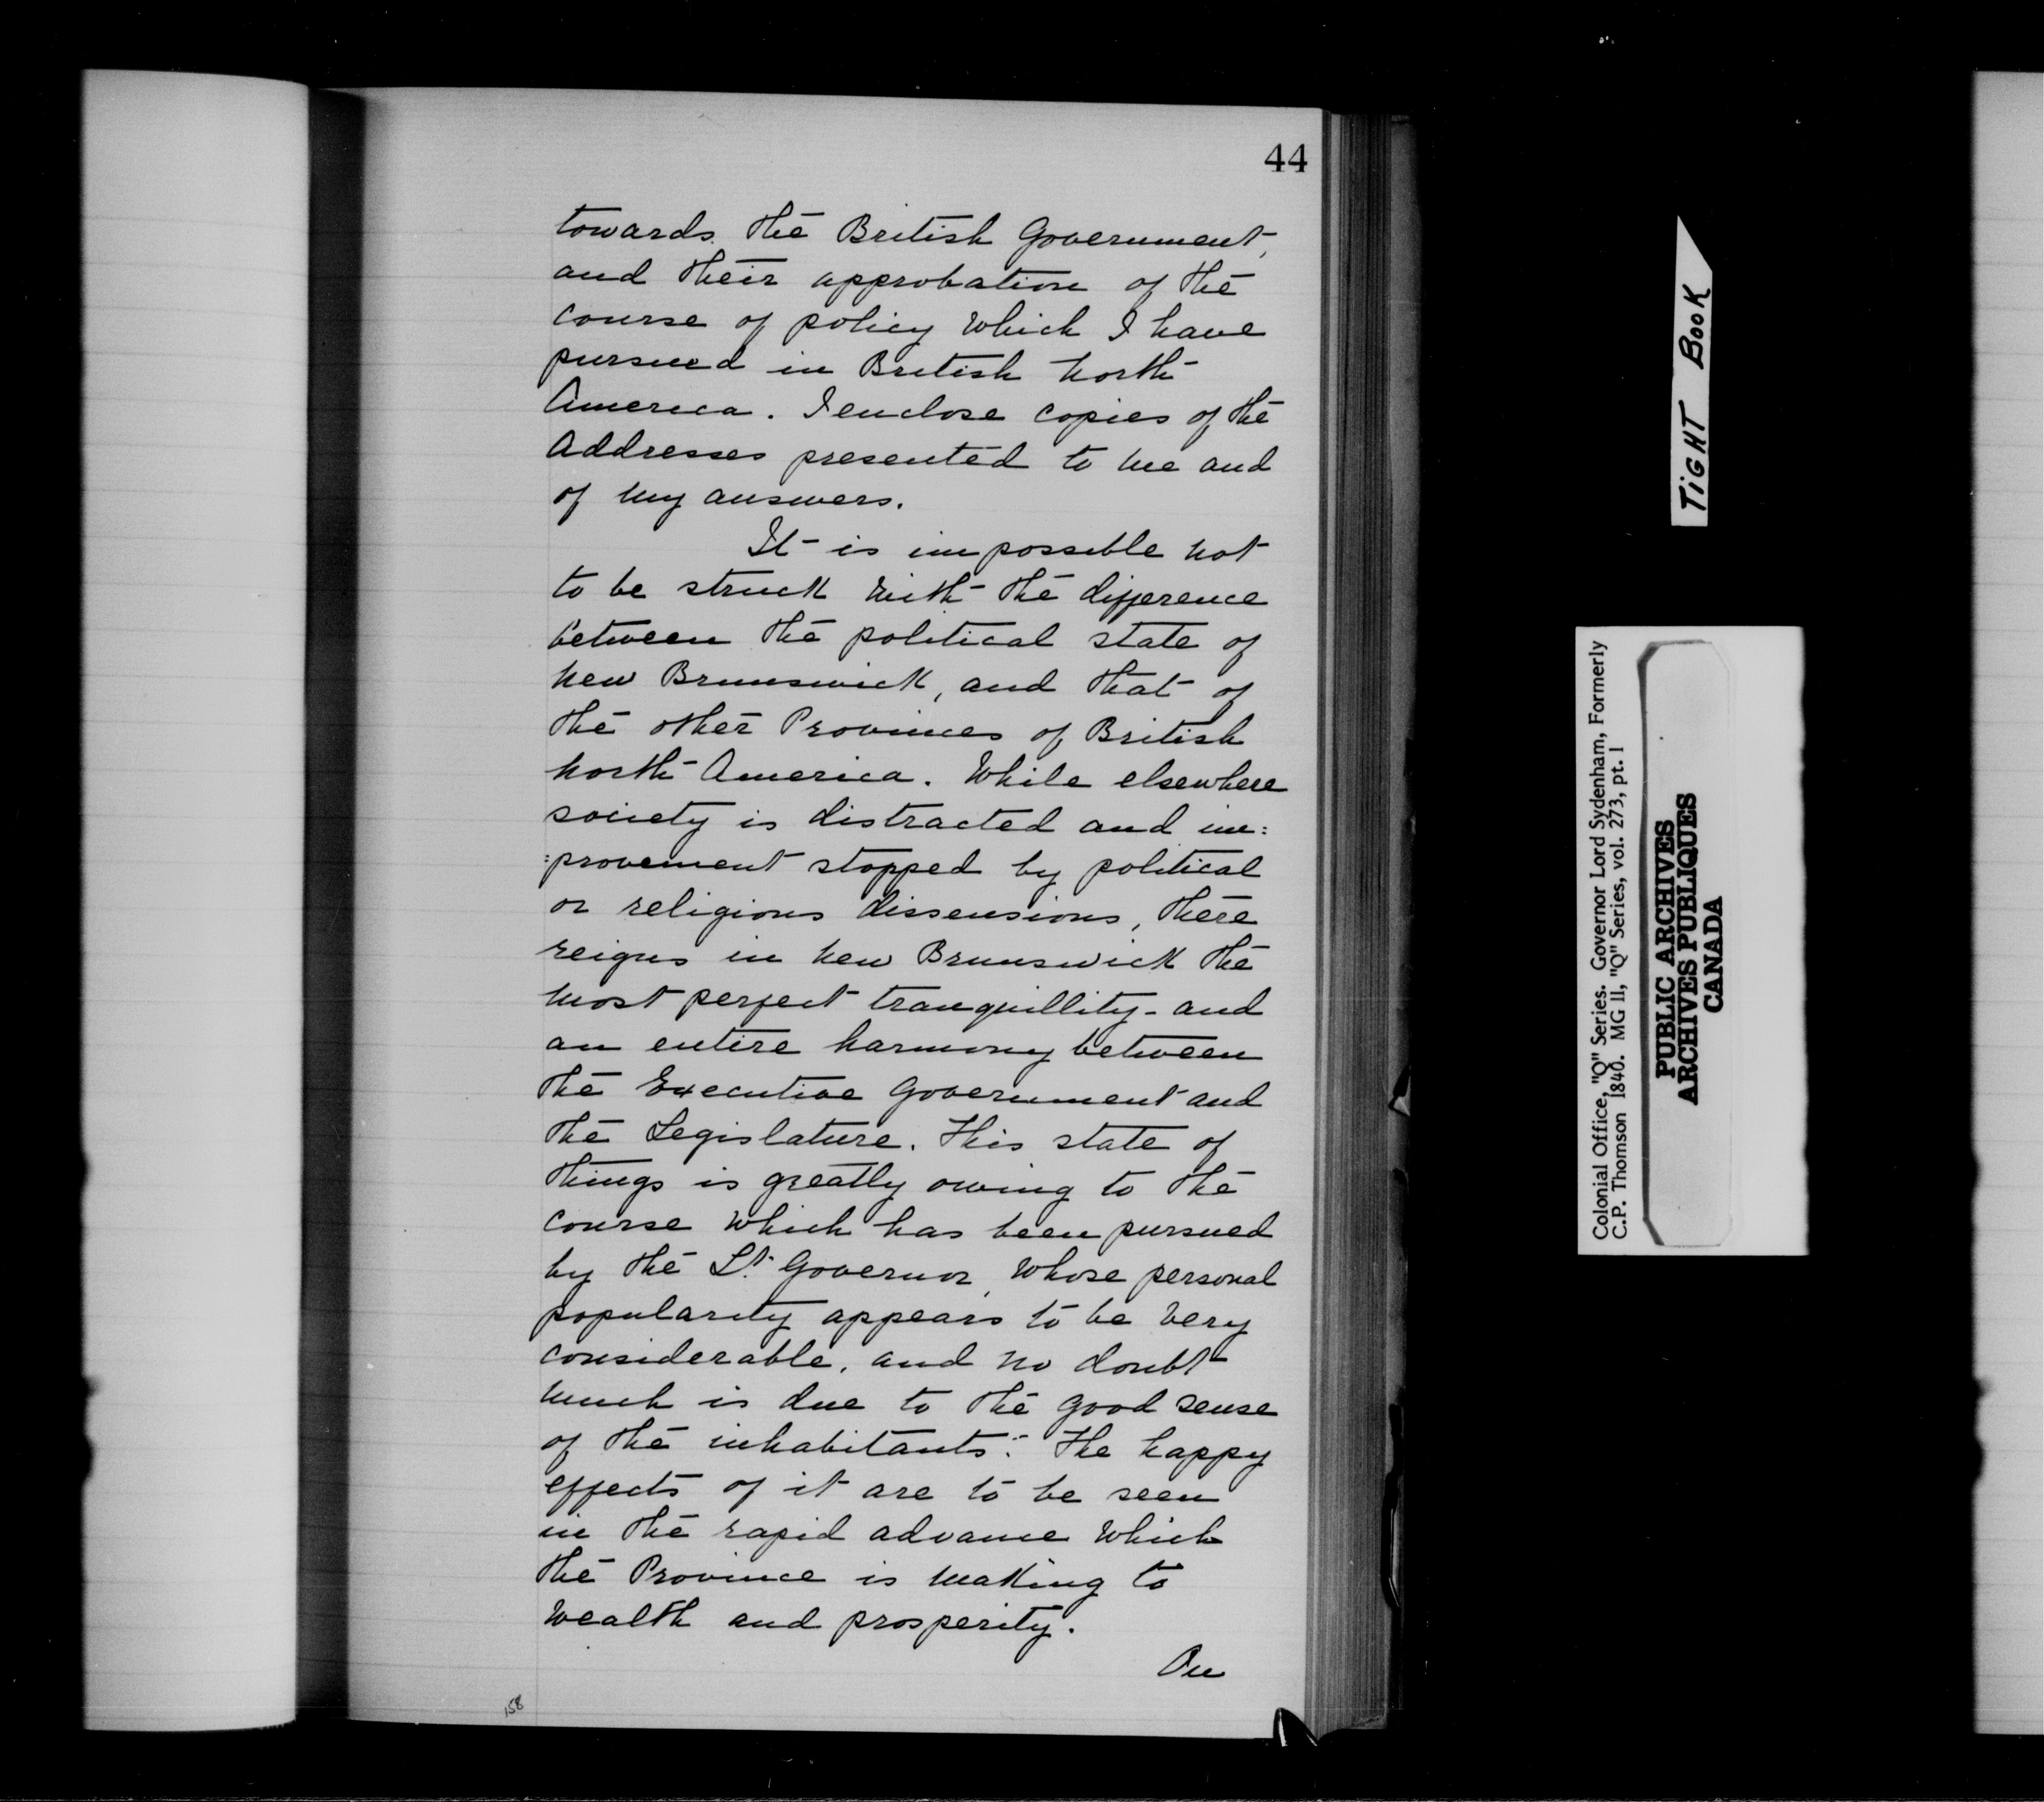 44
towards the British Government,
and their approbation of the
course of policy which I have
pursued in British North
America. I enclose copies of the
Addresses presented to me and
of my answers.
It is impossible not
to be struck with the difference
between the political state of
New Brunswick, and that of
the other Provinces of British
North America. While elsewhere
society is distracted and im:
:provement stopped by political
or religious dissensions, there
reigns in New Brunswick the
most perfect tranquillity - and
an entire harmony between
the Executive Government and
the Legislature. This state of
things is greatly owing to the
course which has been pursued
by the Lt. Governor, whose personal
popularity appears to be very
considerable, and no doubt
much is due to the good sense
of the inhabitants:- The happy
effects of it are to be seen
in the rapid advance which
the Province is making to
wealth and prosperity.
On
158
TIGHT BOOK
Colonial Office, "Q" Series. Governor Lord Sydenham, Formerly
C.P. Thomson 1840. MG 11, "Q" Series, vol. 273, pt. 1
PUBLIC ARCHIVES
ARCHIVES PUBLIQUES
CANADA